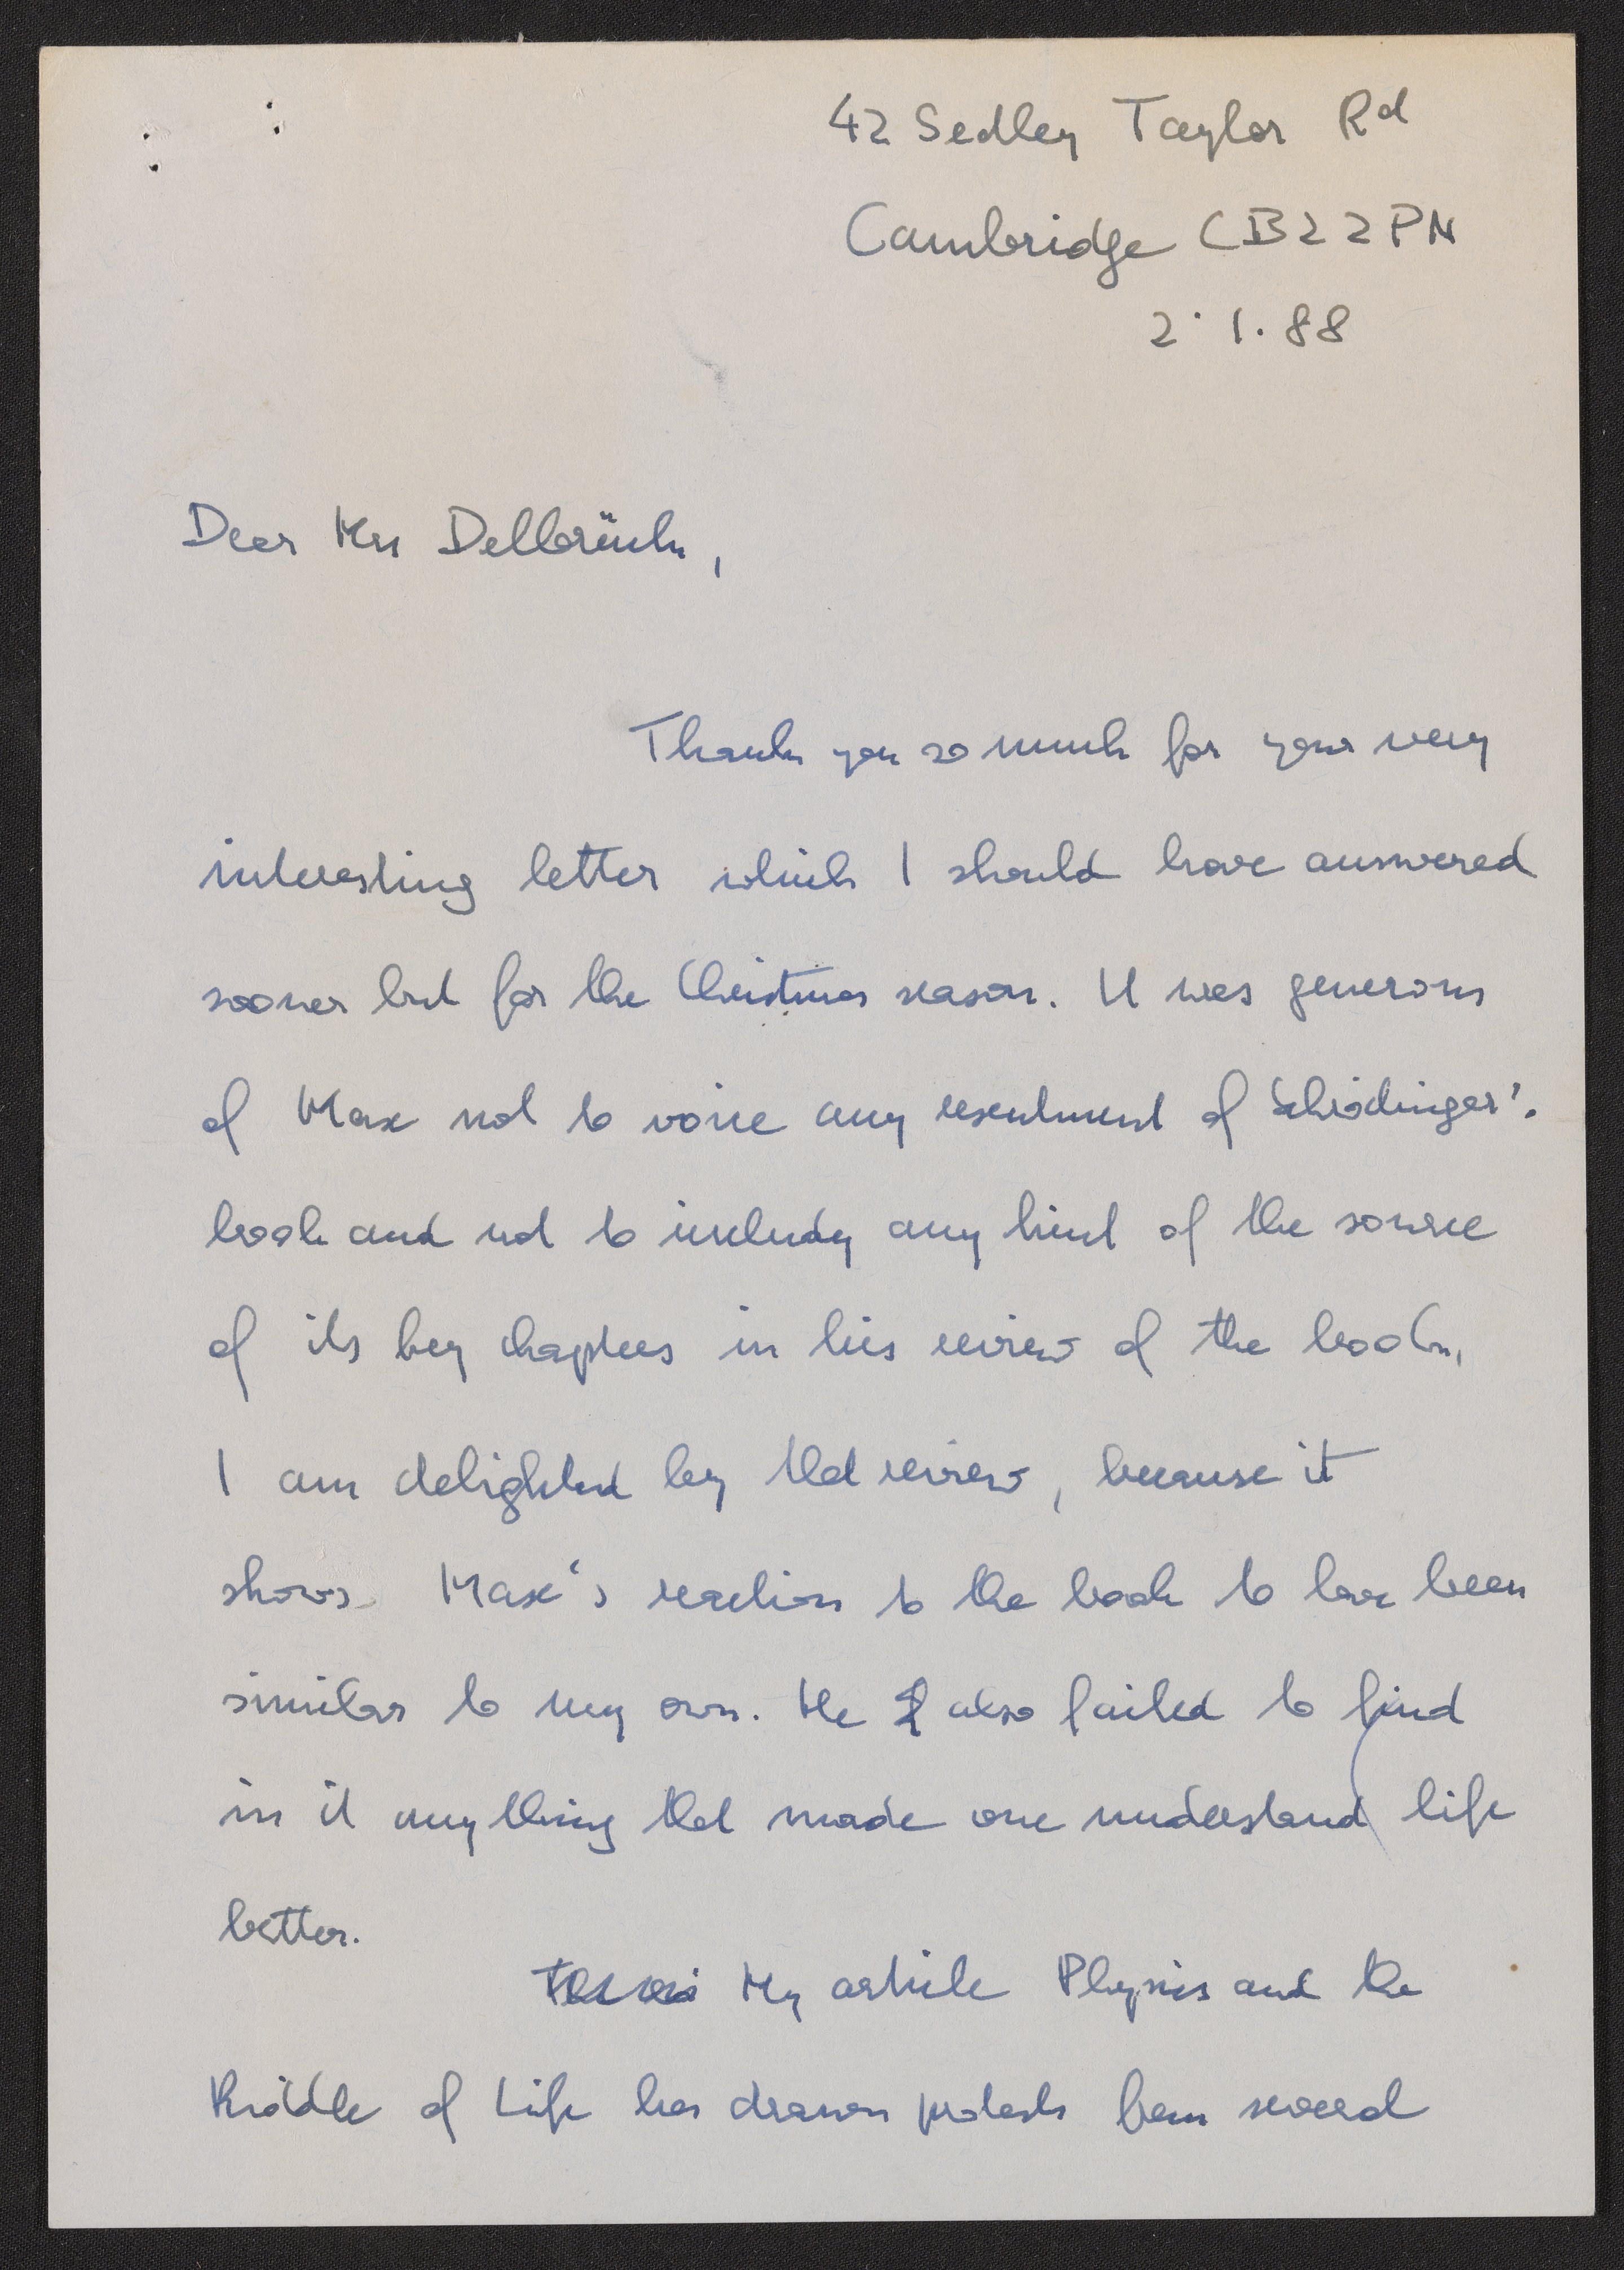 42 Sedley Taylor Rd
Cambridge CB2 2PN
2.1.88
Dear Mrs Delbrück,
Thank you so much for your very
interesting letter which I should have answered
sooner but for the Christmas season. It was generous
of Max not to voice any resentment of Schrödinger's
book and not to include any hint of the source
of its key chapters in his review of the book.
I am delighted by that review, because it
shows Max's reaction to the book to have been
similar to my own. He also failed to find
in it anything that made one understand life
better.
My article Physics and the
Riddle of Life has drawn protests from several